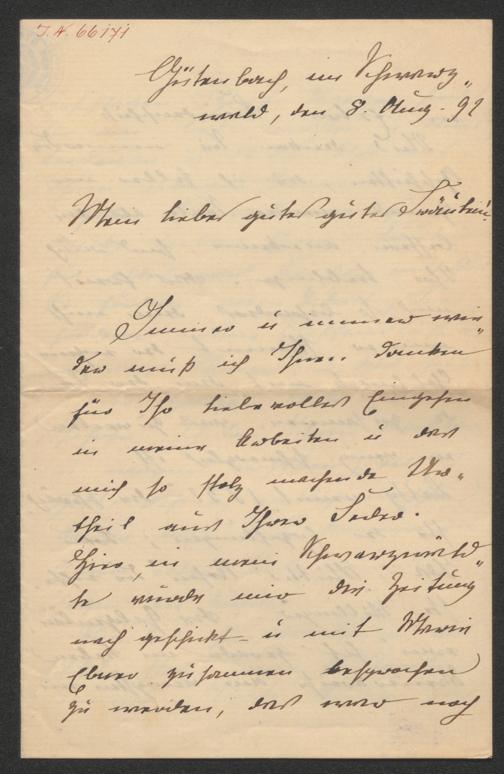 J. N. 66171
Gütenbach, im Schwarz„
wald, den 8. Aug. 92
Mein liebes gutes gutes Fräulein!
Immer u immer wie„
der muß ich Ihnen danken
für Ihr liebevolles Eingehen
in meine Arbeiten u das
mich so stolz machende Ur„
theil aus Ihrer Feder.
Hier, in mein Schwarzwäld„
le wurde mir die Zeitung
nach geschickt – u mit Marie
Ebner zusammen besprochen
zu werden, das war noch